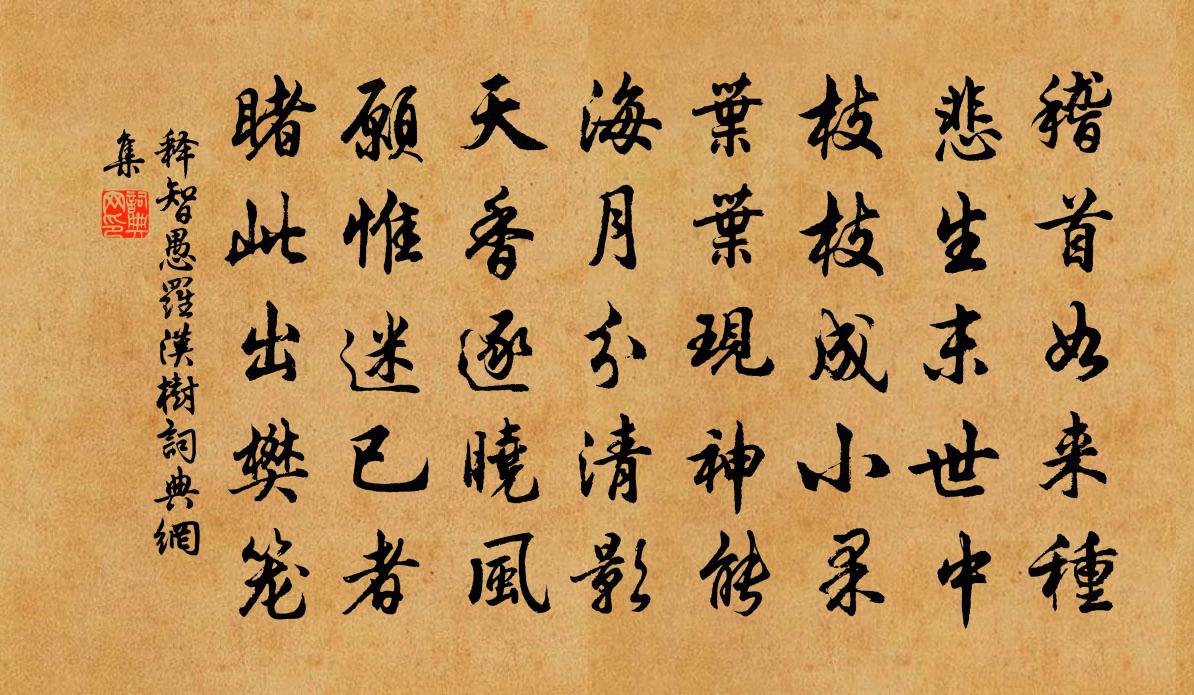 稽首如来種
悲生末世中
枝枝成小果
葉葉現神能
海月分清影
天香逐曉風
願惟迷已者
睹此出樊笼
释智愚羅漢樹詞典網
集
詞典网印